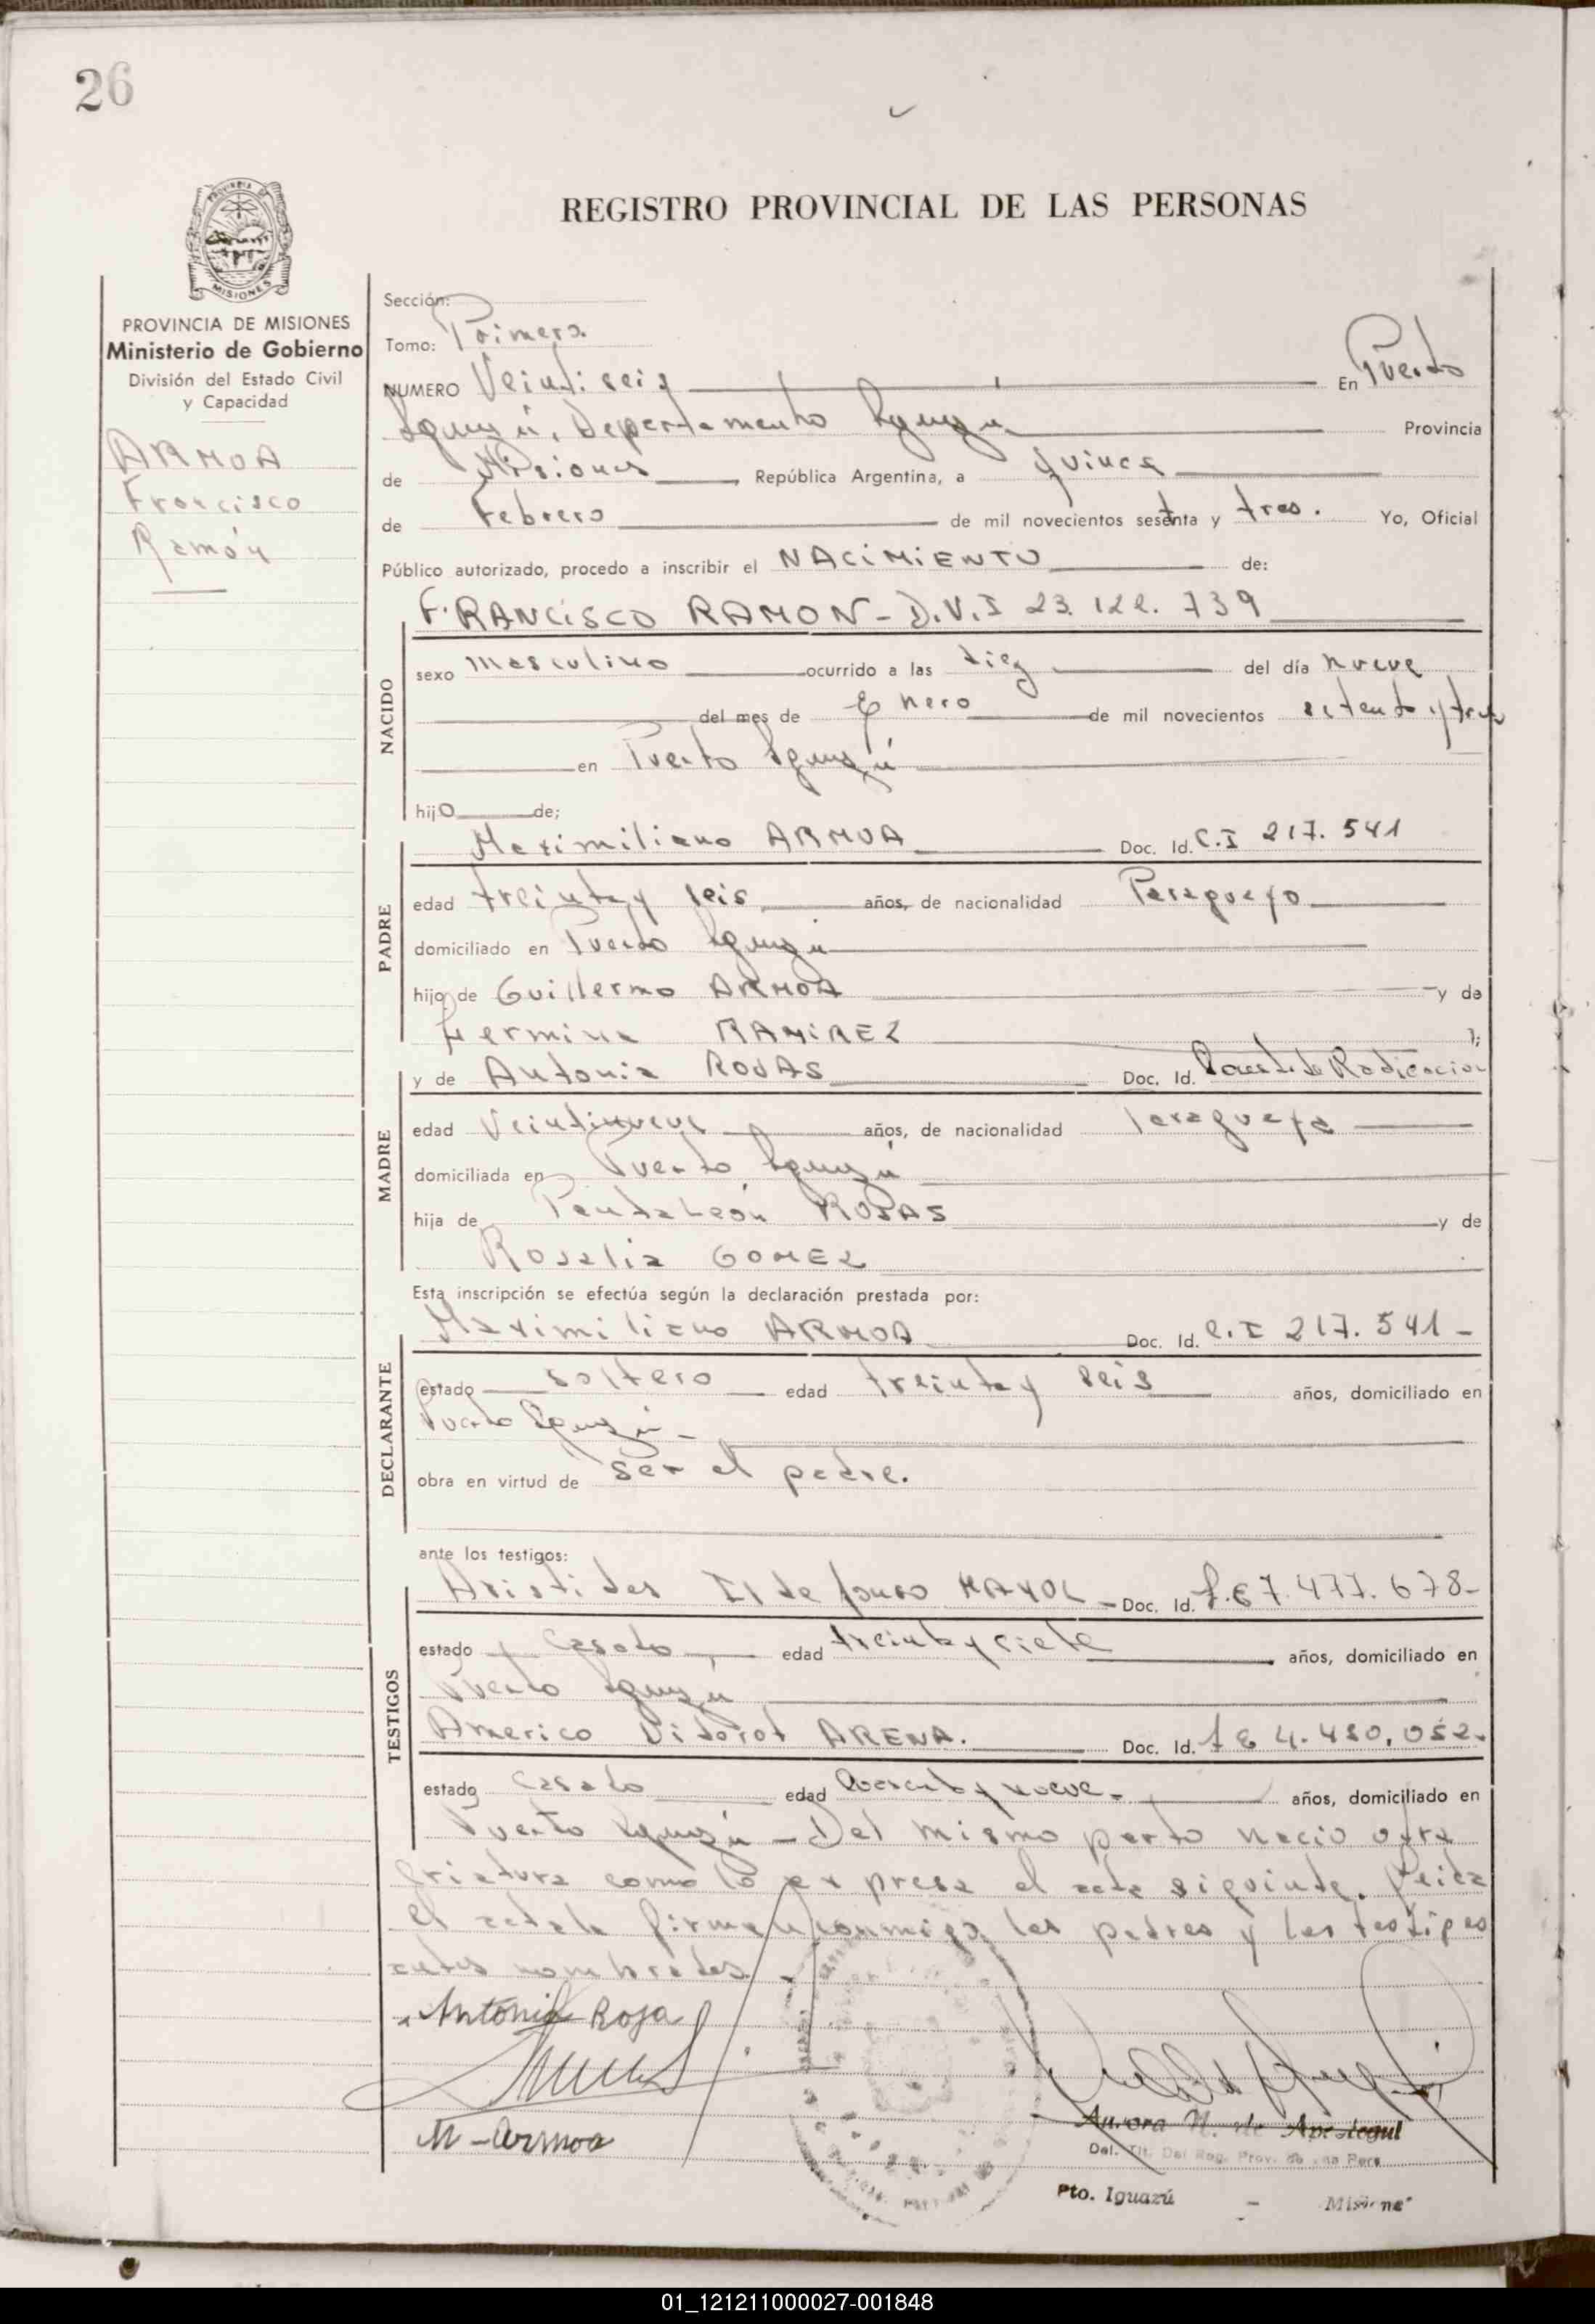 26
REGISTRO PROVINCIAL DE LAS PERSONAS
PROVINCIA DE MISIONES
Ministerio de Gobierno
División del Estado Civil
y Capacidad
ARMOA
Francisco
Ramón
Sección:
Tomo: Primero
NUMERO Veintiseis En Puerto
Iguazú, Departamento Iguazú Provincia
de Misiones, República Argentina, a quince
de Febrero de mil novecientos setenta y tres. Yo, Oficial
Público autorizado, procedo a inscribir el NACIMIENTO de:
FRANCISCO RAMON - D.V.I 23.122.739
NACIDO
sexo masculino ocurrido a las diez del día nueve
del mes de Enero de mil novecientos setenta y tres
en Puerto Iguazú
hijo de;
PADRE
Maximiliano ARMOA Doc. Id. C.I 217.541
edad treinta y seis años, de nacionalidad Paraguayo
domiciliado en Puerto Iguazú
hijo de Guillermo ARMOA y de
Hermina RAMIREZ
MADRE
y de Antonia ROJAS Doc. Id. Radicacion
edad Veintinueve años, de nacionalidad Paraguaya
domiciliada en Puerto Iguazú
hija de Pantaleón ROJAS y de
Rosalia GOMEZ
Esta inscripción se efectúa según la declaración prestada por:
DECLARANTE
Maximiliano ARMOA Doc. Id. C.I 217.541 -
estado soltero edad treinta y seis años, domiciliado en
Puerto Iguazú -
obra en virtud de ser el padre.
ante los testigos:
TESTIGOS
Aristides Ildefonso MAYOL - Doc. Id. L.E 7.477.678-
estado casado edad treinta y siete años, domiciliado en
Puerto Iguazú
Americo ARENA. Doc. Id. L E 4.480.052-
estado casado edad y nueve - años, domiciliado en
Puerto Iguazú - Del mismo parto nacio otra
criatura como lo expresa el acta siguiente. Leida
el acta la firman conmigo los padres y los testigos
antes nombrados.
Antonia Roja
M-Armoa
Aurora N. de Apestegui
Del. Tit. Del Reg. Prov. de las Pers.
Pto. Iguazú - Misiones
01_121211000027-001848